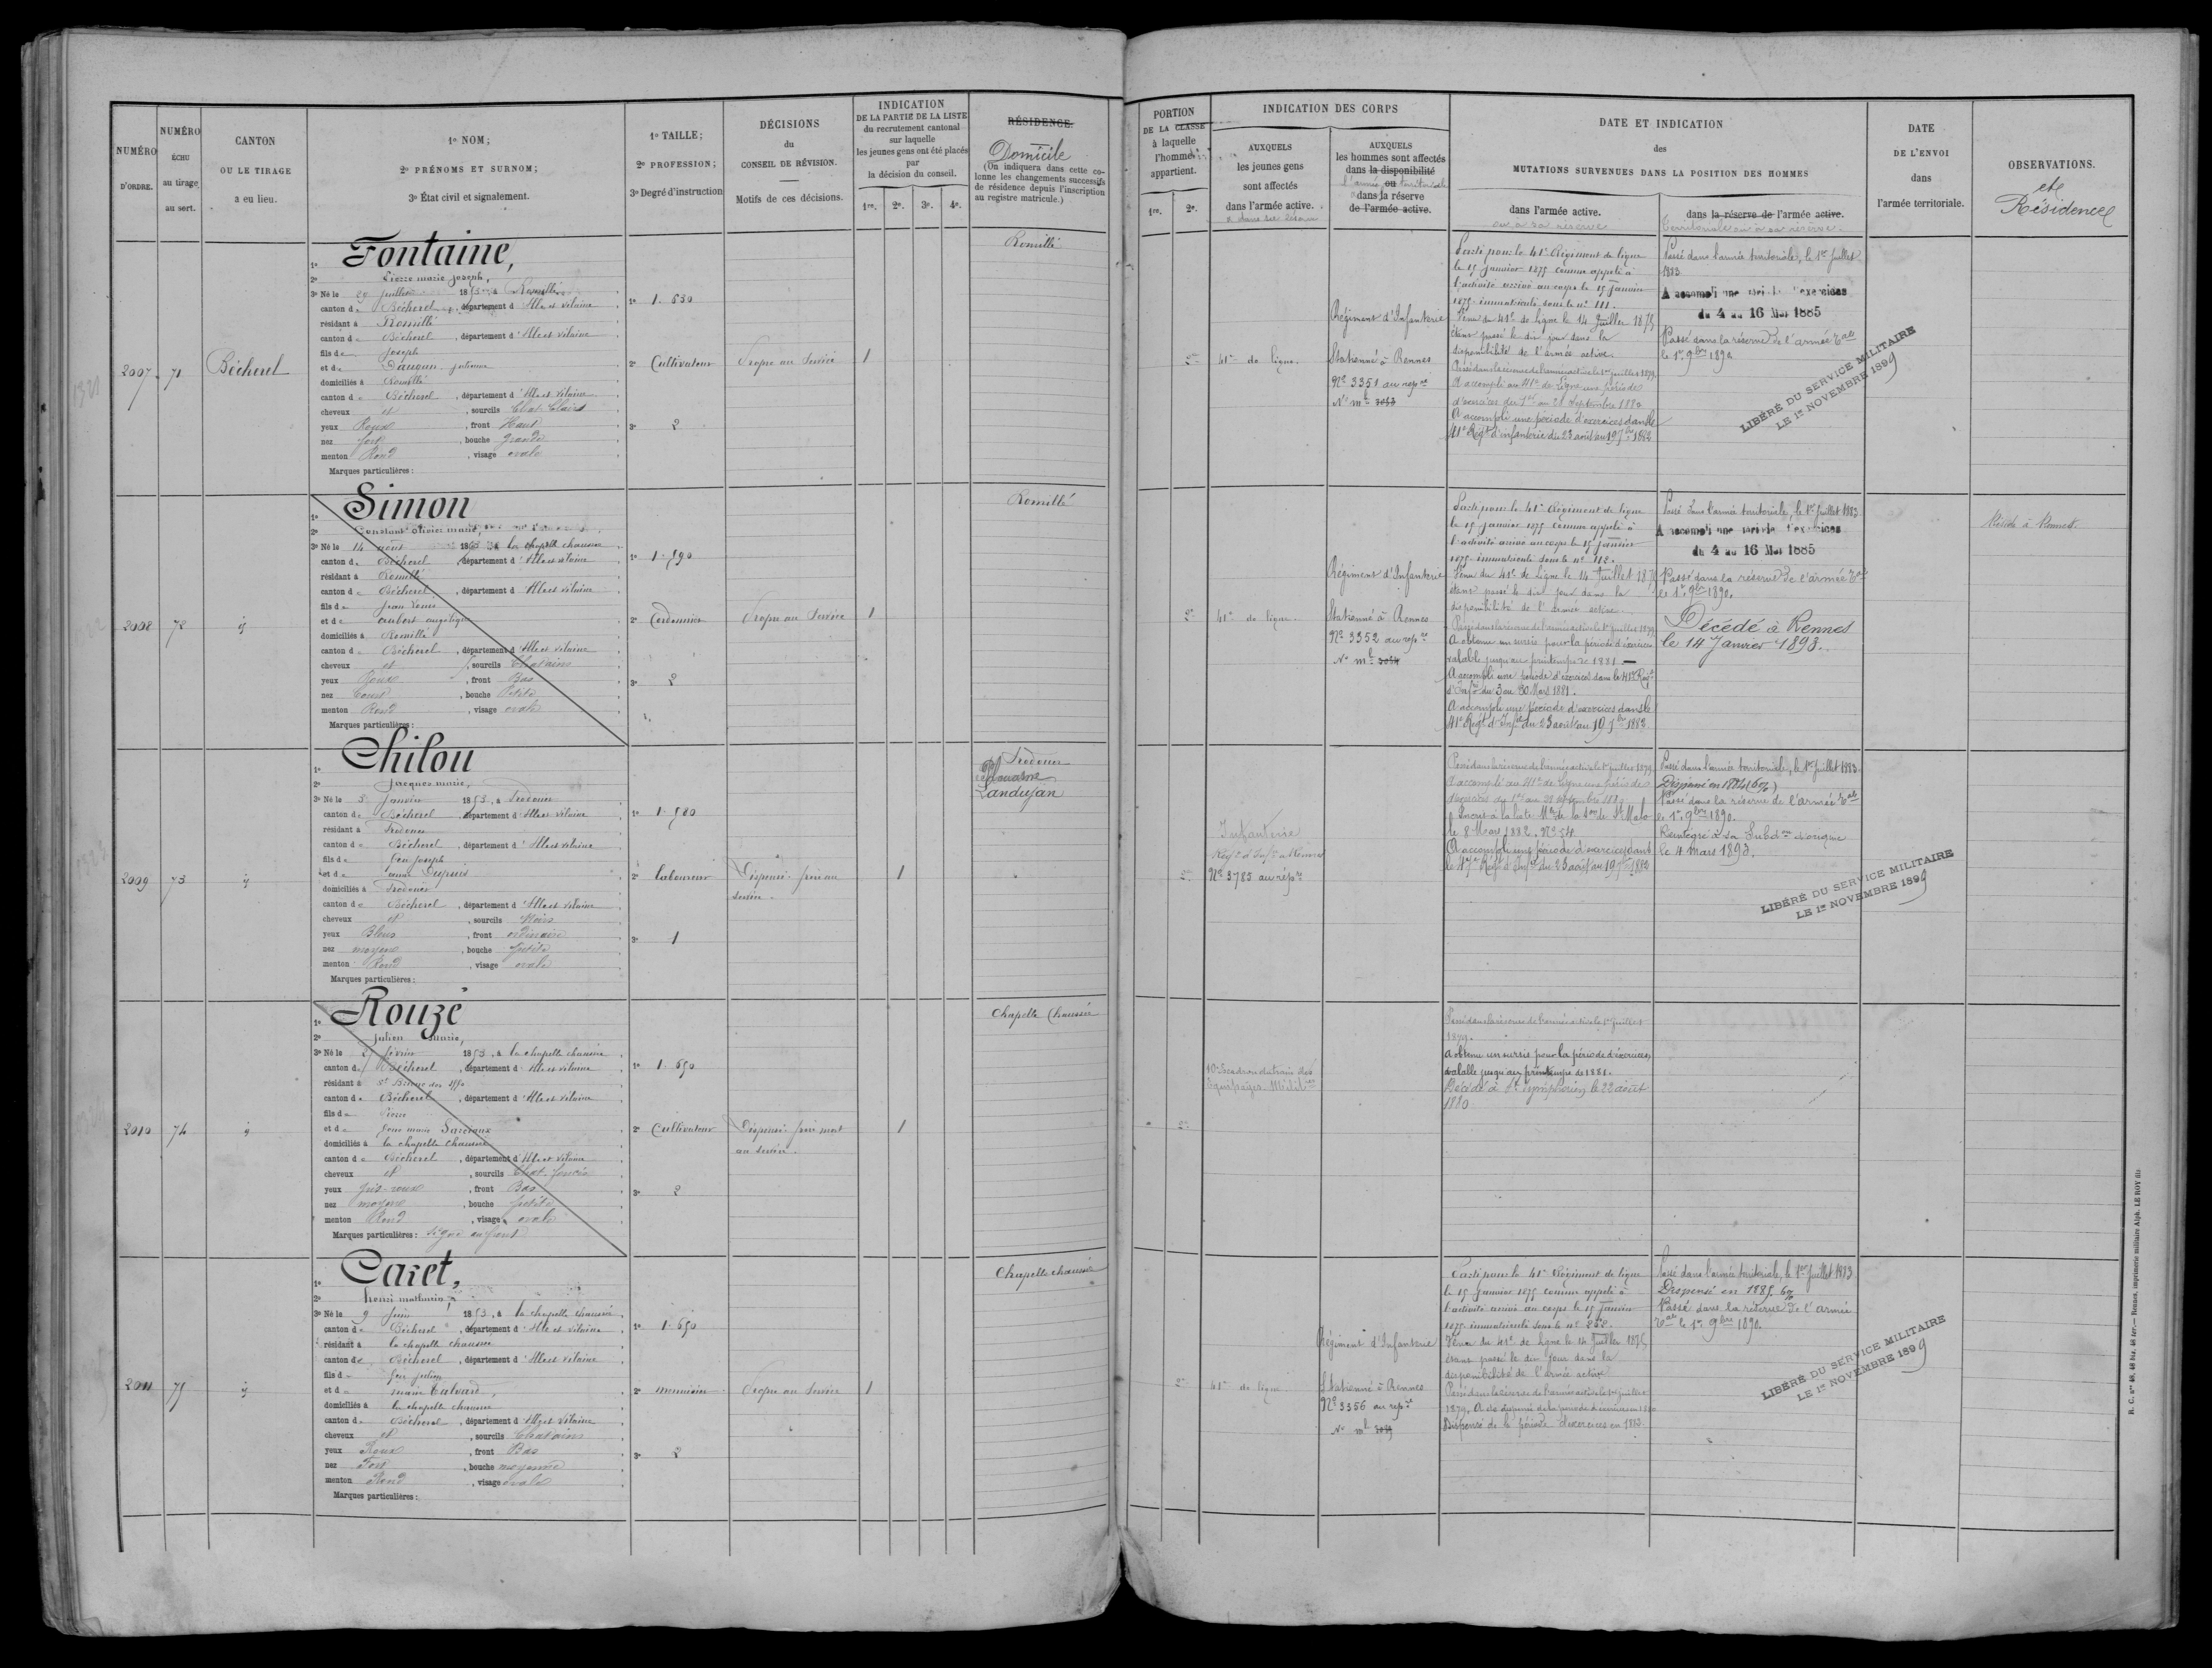 NUMÉRO
D'ORDRE.
NUMÉRO
ÉCHU
au tirage
au sort.
CANTON
OU LE TIRAGE
a eu lieu.
1º NOM;
2º PRÉNOMS ET SURNOM;
3º État civil et signalement.
1º TAILLE;
2º PROFESSION;
3º Degré d'instruction
DÉCISIONS
du
CONSEIL DE RÉVISION.
Motifs de ces décisions.
INDICATION
DE LA PARTIE DE LA LISTE
du recrutement cantonal
sur laquelle
les jeunes gens ont été placés
par
la décision du conseil.
1re. 2e. 3e. 4e.
RÉSIDENCE.
Domicile
(On indiquera dans cette co-
lonne les changements successifs
de résidence depuis l'inscription
au registre matricule.)
2007
71
Bécherel
Fontaine,
Pierre marie joseph,
3º Né le 29 juillet 1853, à Romillé
canton de Bécherel, département d'Ille et Vilaine
résidant à Romillé
canton de Bécherel, département d'Ille et Vilaine
fils de Joseph
domiciliés à Romillé
canton de Bécherel, département d'Ille et Vilaine
cheveux et, sourcils Chat. Clairs
yeux Roux, front Haut
nez fort, bouche grande
menton Rond, visage ovale
Marques particulières:
1º 1.630
2º Cultivateur
3º 2
Propre au Service
1
Romillé
2008
72
Simon
Constant olivier marie,
3º Né le 14 août 1853, à la chapelle chaussée
canton de Bécherel, département d'Ille et Vilaine
résidant à Romillé
canton de Bécherel, département d'Ille et Vilaine
fils de Jean Louis
et de aubert angelique
domiciliés à Romillé
canton de Bécherel, département d'Ille et Vilaine
cheveux et, sourcils Chatains
yeux Roux, front Bas
nez Court, bouche Petite
menton Rond, visage ovale
Marques particulières:
1º 1.590
2º Cordonnier
3º 2
Propre au Service
1
Romillé
2009
73
Chilou
Jacques marie,
3º Né le 5 Janvier 1853, à Irodouer
canton de Bécherel, département d'Ille et Vilaine
résidant à Irodouer
canton de Bécherel, département d'Ille et Vilaine
fils de feu joseph
domiciliés à Irodouer
canton de Bécherel, département d'Ille et Vilaine
cheveux et, sourcils Noirs
yeux Bleus, front ordinaire
nez moyen, bouche petite
menton Rond, visage ovale
Marques particulières:
1º 1.580
2º laboureur
3º 1
Dispensé frère au
service.
1
Irodouer
Plouasne
Landujan
2010
74
Rouzé
Julien Marie,
3º Né le février 1853, à la chapelle chaussée
canton de Bécherel, département d'Ille et Vilaine
canton de Bécherel, département d'Ille et Vilaine
fils de Pierre
domiciliés à la chapelle chaussée
canton de Bécherel, département d'Ille et Vilaine
cheveux et, sourcils Chat. foncés
yeux gris-roux, front Bas
nez moyen, bouche petite
menton Rond, visage ovale
Marques particulières: signe au front
1º 1.650
2º Cultivateur
3º 2
Dispensé frère mort
au service.
1
Chapelle Chaussée
2011
75
Caret,
henri mathurin,
3º Né le 9 Juin 1853, à la chapelle chaussée
canton de Bécherel, département d'Ille et Vilaine
résidant à la chapelle chaussée
canton de Bécherel, département d'Ille et Vilaine
fils de feu julien
domiciliés à la chapelle chaussée
canton de Bécherel, département d'Ille et Vilaine
cheveux et, sourcils Chatains
yeux Roux, front Bas
nez Fort, bouche moyenne
menton Rond, visage ovale
Marques particulières:
1º 1.650
2º menuisier
3º 2
Propre au Service
1
Chapelle chaussée
PORTION
DE LA CLASSE
à laquelle
l'homme
appartient.
1re. 2e.
INDICATION DES CORPS
AUXQUELS
les jeunes gens
sont affectés
dans l'armée active.
AUXQUELS
les hommes sont affectés
dans la disponibilité
ou
dans la réserve
de l'armée active.
DATE ET INDICATION
des
MUTATIONS SURVENUES DANS LA POSITION DES HOMMES
dans l'armée active.
ou a sa réserve
dans la réserve de l'armée active.
territoriale ou a sa réserve.
DATE
DE L'ENVOI
dans
l'armée territoriale.
OBSERVATIONS.
et
Résidence
2e
41e de ligne.
Régiment d'Infanterie
Stationné à Rennes
Nº 3351 au répre
Parti pour le 41e Régiment de ligne
le 15 janvier 1875 comme appelé à
l'activité arrivé au corps le 15 janvier
1875 immatriculé sous le nº 111.
Venu du 41e de ligne le 14 Juillet 1875
étant passé le dit jour dans la
disponibilité de l'armée active.
Passé dans la réserve de l'armée active le 1er juillet 1879.
A accompli au 41e de Ligne une période
A accompli une période d'exercices dans le
41e Régt d'infanterie du 23 août au 19 7bre 1882
Passé dans l'armée territoriale, le 1er Juillet
1883
A accompli une période d'exercices
du 4 au 16 Mai 1885
Passé dans la réserve de l'armée tale
le 1er 9bre 1890
LIBÉRÉ DU SERVICE MILITAIRE
LE 1er NOVEMBRE 1899
2e
41e de ligne.
Régiment d'Infanterie
Stationné à Rennes
Nº 3352 au répre
Parti pour le 41e Régiment de ligne
le 15 janvier 1875 comme appelé à
l'activité arrivé au corps le 15 janvier
1875 immatriculé sous le nº 112.
Venu du 41e de Ligne le 14 Juillet 1875
étant passé le dit jour dans la
disponibilité de l'armée active.
Passé dans la réserve de l'armée active le 1er juillet 1879
A obtenu un sursis pour la période d'exercices
valable jusqu'au printemps de 1881
A accompli une période d'exercices dans le 41e Régt
d'Infrie du 3 au 30 Mars 1881.
A accompli une période d'exercices dans le
41e Régt d'Infrie du 23 août au 19 7bre 1883
Passé dans l'armée territoriale, le 1er Juillet 1883
A accompli une période d'exercices
du 4 au 16 Mai 1885
Passé dans la réserve de l'armée tale
le 1er 9bre 1890.
Décédé à Rennes
le 14 Janvier 1893.
Réside à Rennes
2e
Infanterie
Nº 3785 au répre
Passé dans la réserve de l'armée active le 1er juillet 1879
A accompli au 41e de Ligne une période
le 8 Mars 1882. Nº 54.
A accompli une période d'exercices dans
le 47e Régt d'Infrie du 23 août au 19 7bre 1882
Passé dans l'armée territoriale, le 1er Juillet 1883
Dispensé en 1884 (6%)
Passé dans la réserve de l'armée tale
le 1er 9bre 1890.
Réintégré à sa Subdon d'origine
le 4 mars 1893.
LIBÉRÉ DU SERVICE MILITAIRE
LE 1er NOVEMBRE 1899
2e
10e Escadron du train des
Equipages Militres
Passé dans la réserve de l'armée active le 1er juillet
1879.
A obtenu un sursis pour la période d'exercices
valable jusqu'au printemps de 1881.
Décédé à St Symphorien le 22 août
1880
2e
41e de ligne
Régiment d'Infanterie
Stationné à Rennes
Nº 3356 au répre
Parti pour le 41e Régiment de ligne
le 15 janvier 1875 comme appelé à
l'activité arrivé au corps le 15 janvier
1875 immatriculé sous le nº
Venu du 41e de ligne le 14 Juillet 1875
étant passé le dit jour dans la
disponibilité de l'armée active
Passé dans la réserve de l'armée active le 1er juillet
1879. A été dispensé de la période d'exercices en 1880
Dispensé de la période d'exercices en 1882.
Passé dans l'armée territoriale, le 1er Juillet 1883
Dispensé en 1885. 6%
Passé dans la réserve de l'armée
tale le 1er 9bre 1890.
LIBÉRÉ DU SERVICE MILITAIRE
LE 1er NOVEMBRE 1899
R. C. nos 48, 48 bis, 48 ter.— Rennes, imprimerie militaire Alph. LE ROY fils